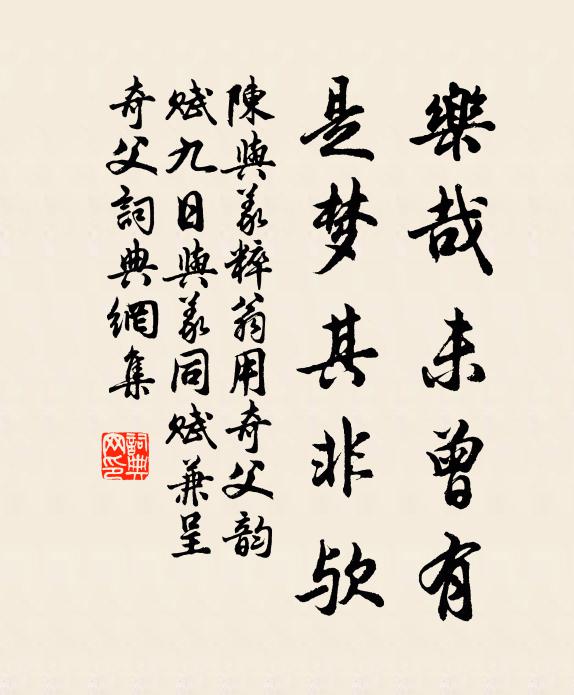 樂哉未曾有
是梦其非欤
陳與義粹翁用奇父韵
赋九日與義同赋兼呈
奇父詞典網集
詞典網印